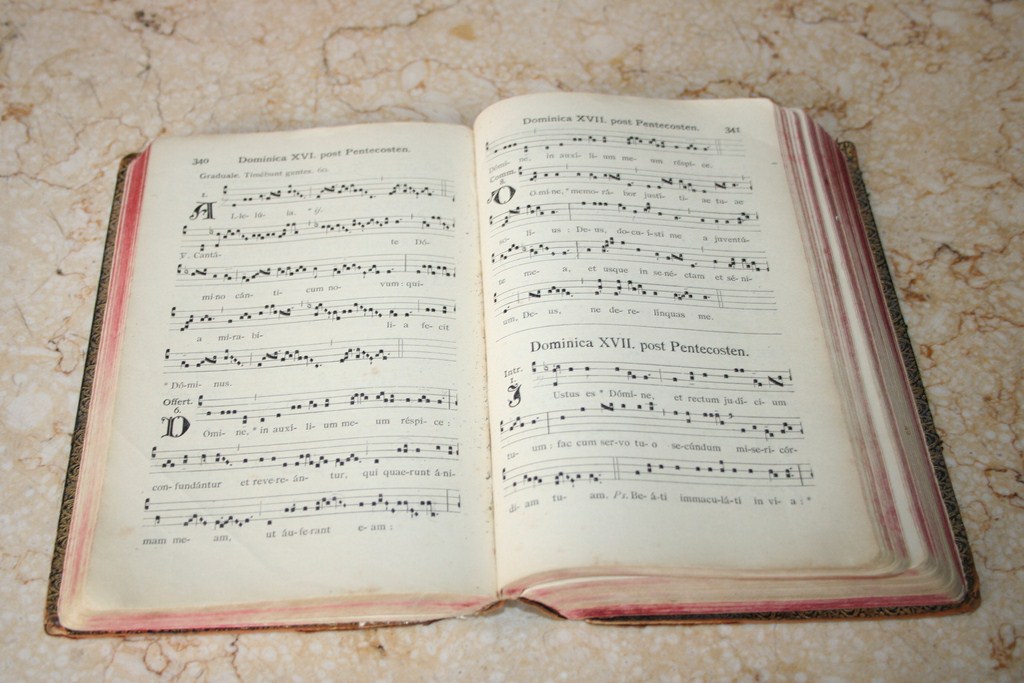 340 Dominica XVI. post Pentecosten.
Graduale. Timébunt gentes. 60.
1.
A L-le- lú- ia. * ij.
℣. Cantá- te Dó-
mi no cán- ti- cum no- vum: qui-
a mi-ra- bí- li- a fe- cit
* Dó-mi- nus.
Offert.
6.
D Omi- ne, * in auxí- li- um me- um réspi- ce:
con-fundántur et reve-re- án- tur, qui quae-runt á-ni-
mam me- am, ut áu-fe-rant e-am:
Dominica XVII. post Pentecosten. 341
Dómi- ne, in auxí- li- um me- um réspi- ce.
Comm.
8.
D O-mi-ne, * memo-rá- bor justí- ti- ae tu- ae
so- lí- us: De-us, do-cu-í-sti me a juventú-
te me- a, et usque in se-né- ctam et sé-ni-
um, De- us, ne de-re- línquas me.
Dominica XVII. post Pentecosten.
Intr.
1.
J Ustus es * Dómi- ne, et rectum ju-dí- ci- um
tu- um: fac cum ser-vo tu- o se-cúndum mi-se-ri-cór-
di- am tu- am. Ps. Be- á-ti immacu-lá-ti in vi- a: *